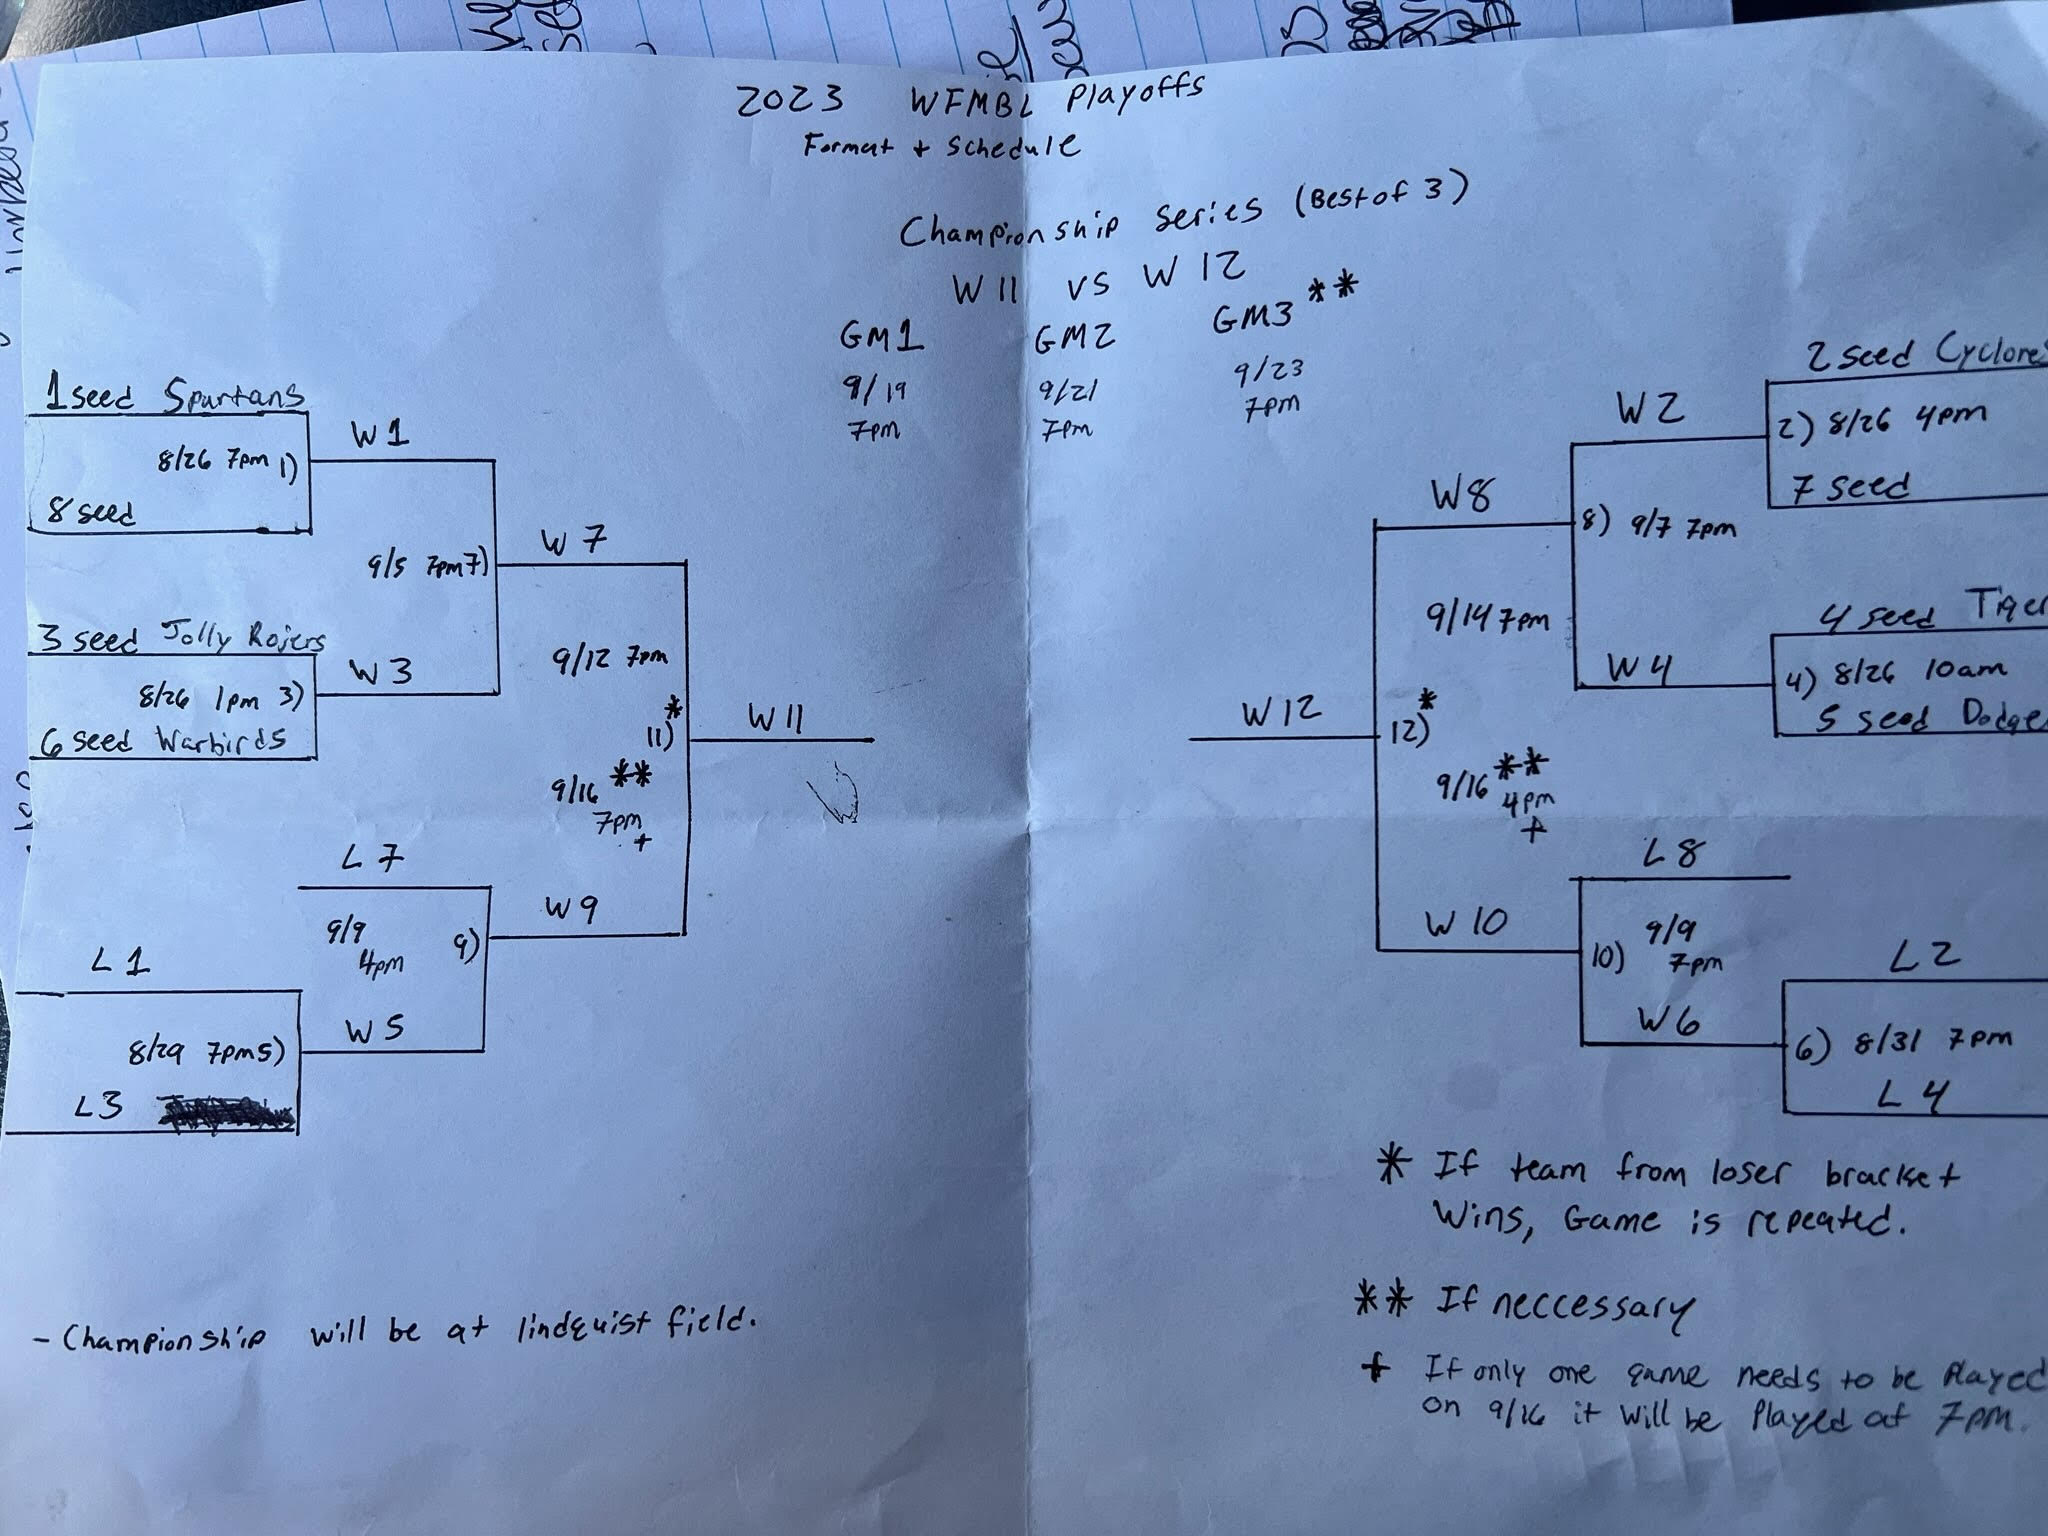 2023 WFMBL Playoffs
Format + Schedule
Championship Series (Best of 3)
W 11 VS W 12
GM1 GM2 GM3 **
9/19 9/21 9/23
7pm 7pm 7pm
1 seed Spartans
W 1
8/26 7pm 1)
8 seed
W 7
9/5 7pm 7)
3 seed Jolly Rojers
W 3
8/26 1pm 3)
6 seed Warbirds
9/12 7pm
*
11)
W 11
9/16 **
7pm
+
L 7
W 9
9/9
4pm
9)
L 1
W 5
8/29 7pm 5)
L3
- Championship will be at lindquist field.
2 seed
W 2
2) 8/26 4pm
7 seed
W8
8) 9/7 7pm
4 seed
9/14 7pm
W 4
4) 8/26 10am
5 seed
W 12
*
12)
9/16 **
4pm
+
L 8
W 10
9/9
10) 7pm
L 2
W 6
6) 8/31 7pm
L 4
* If team from loser bracket
Wins, Game is repeated.
** If neccessary
+ If only one game needs to be Played
on 9/16 it will be Played at 7pm.